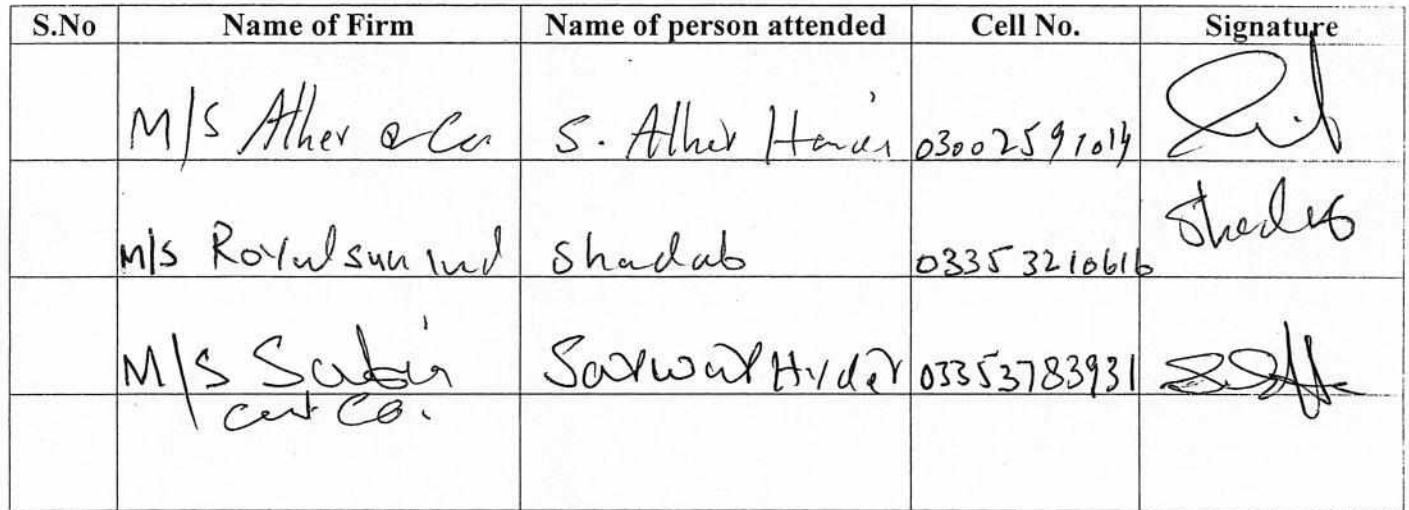 S.No Name of Firm Name of person attended Cell No. Signature
M/S Ather & Co S. Ather 03002591014
M/S Royal sun ind Shadab 03353210616 Shadab
M/S Sabir Sarwar Hyder 03353783931
Co.